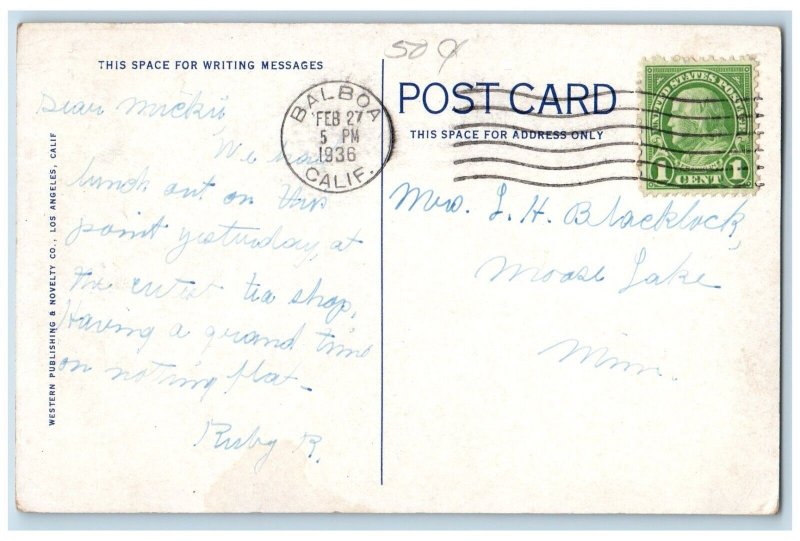 50¢
THIS SPACE FOR WRITING MESSAGES
Dear Micki,
We had
lunch out on this
point yesterday, at
the cutest tea shop.
Having a grand time
on nothing flat -
Ruby R.
WESTERN PUBLISHING & NOVELTY CO., LOS ANGELES, CALIF
BALBOA
FEB 27
5 PM
1936
CALIF.
POST CARD
THIS SPACE FOR ADDRESS ONLY
UNITED STATES POSTAGE
1 CENT 1
Mrs. L. H. Blacklock,
Moose Lake
Minn.